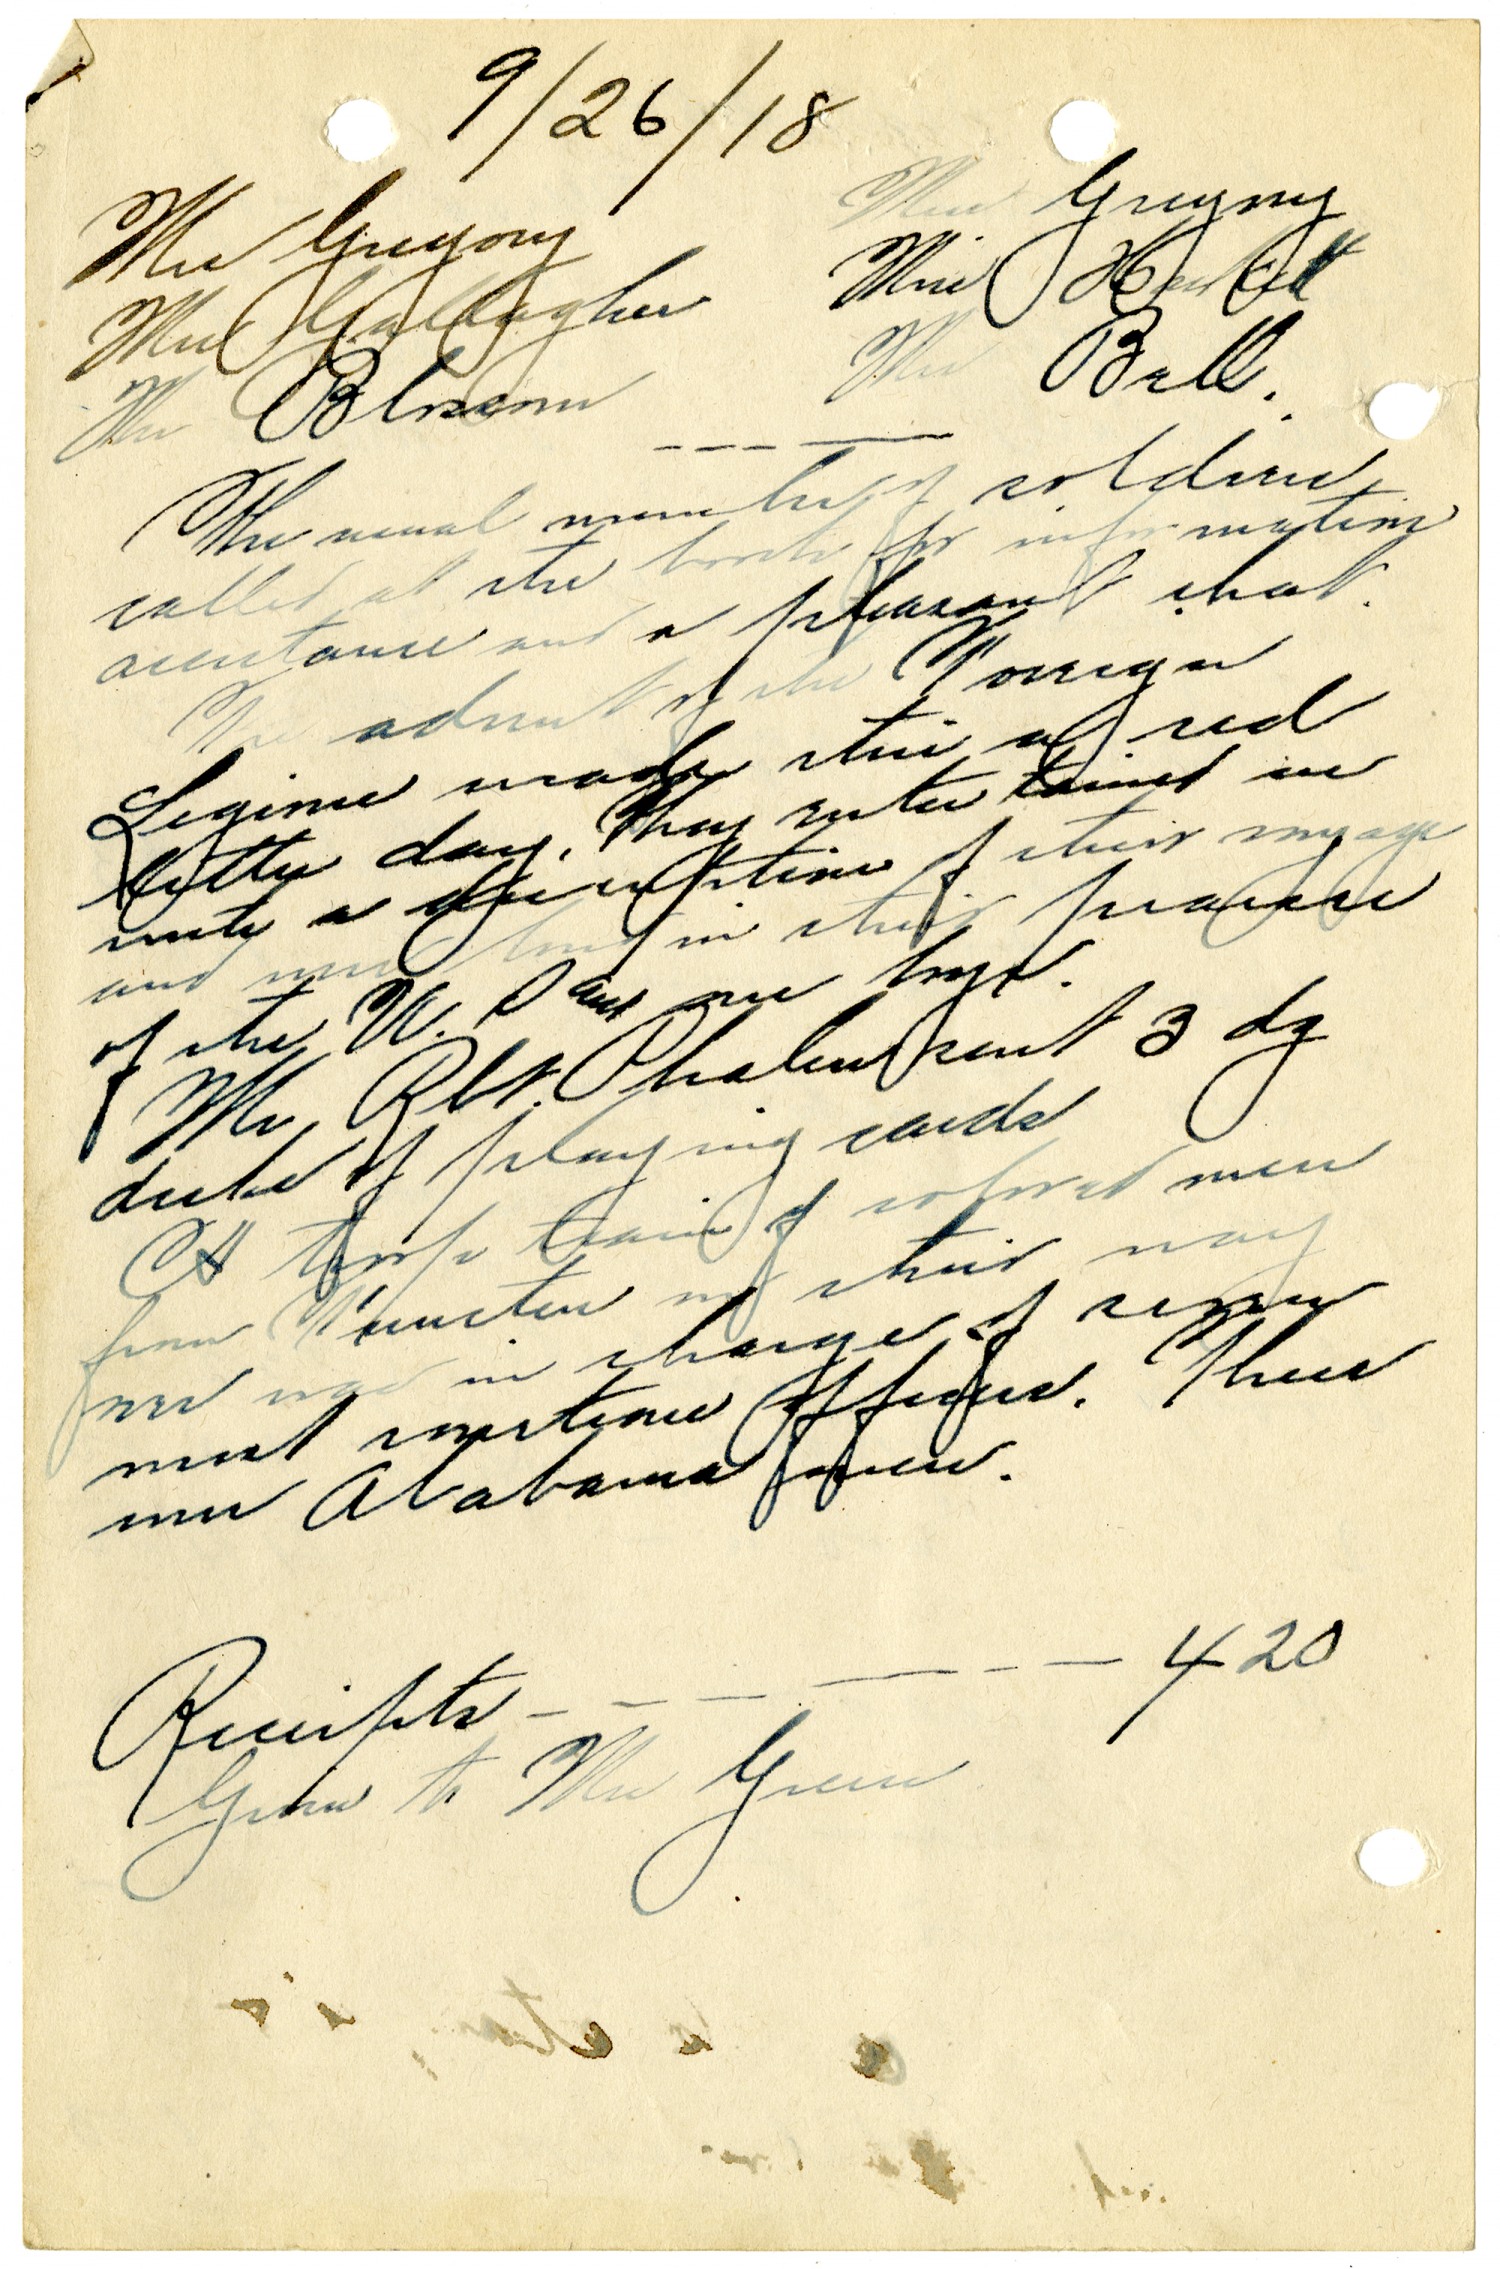 9/26/18
Mrs Gregory Miss Gregory
Mrs Gallagher Miss
Mrs Blossom Mrs Bell.
The usual number of soldiers
called at the booth for information
assistance and a pleasant chat.
The advent of the Foreign
Legion made this a red
letter day. They entertained us
with a description of their voyage
and were loud in their praises
of the U. S. and our boys.
Mr. Robt. Phalen sent 3 dz
decks of playing cards
A troop train of colored men
from Funston on their way
over was in charge of seven
most courteous officers. These
were Alabama men.
Receipts - - - - - - 4 20
Given to Mrs Green